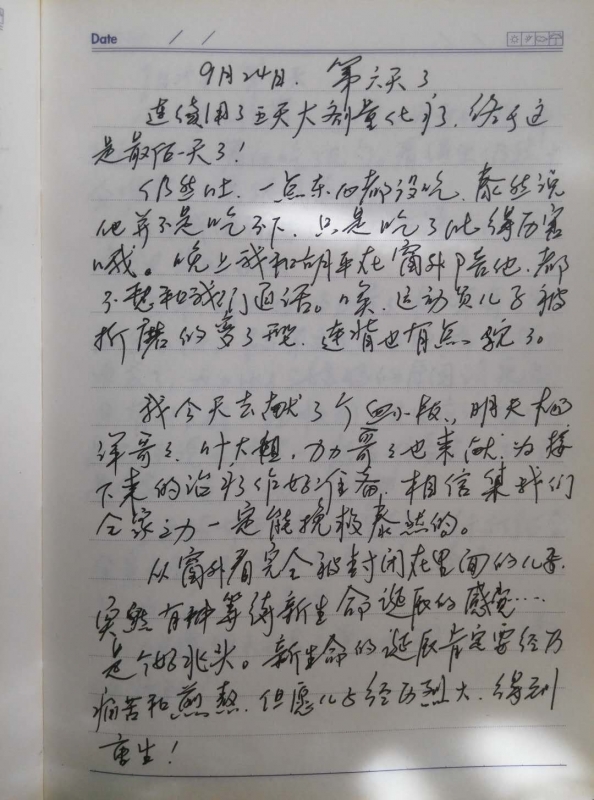 Date / /
9月24日. 第六天了
连续用了五天大剂量化疗, 终于这
是最后一天了!
仍然吐, 一点东西都没吃, 泰然说
他并不是吃不下, 只是吃了吐得厉害
哦。晚上我和胡平在窗外陪他, 都
不想和我们通话。唉, 运动员儿子被
折磨的变了型, 连背也有点驼了。
我今天去献了个血小板, 明天
哥, 叶大姐, 力力哥哥也来献, 为接
下来的治疗作好准备, 相信集我们
全家之力一定能挽救泰然的。
从窗外看完全被封闭在里面的儿子,
突然有种等待新生命诞辰的感觉……
是个好兆头。新生命的诞辰肯定要经历
痛苦和煎熬, 但愿儿子经历烈火, 得到
重生!